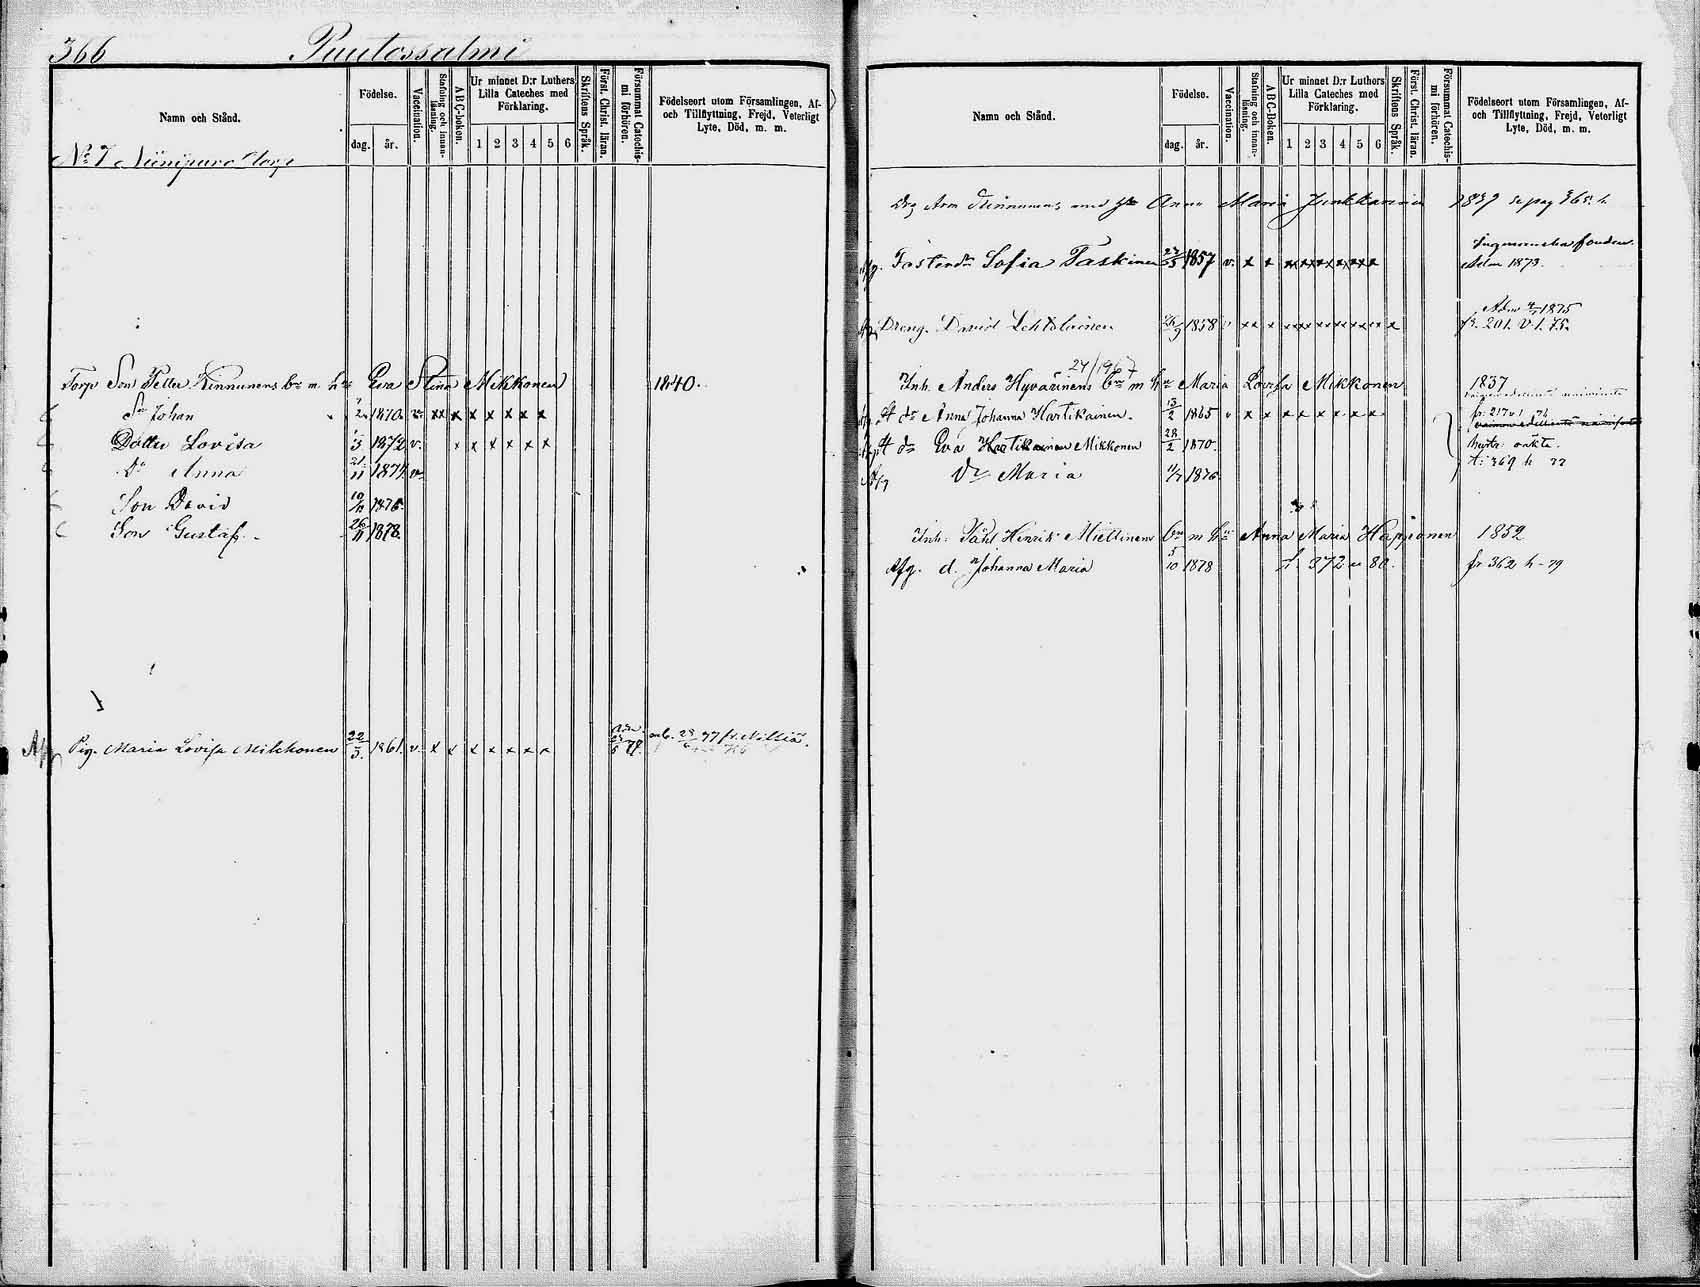 366 Puutossalmi
Namn och Stånd.
Födelse.
dag. år.
Vaccination.
Stafning och innanläsning.
A B C-boken.
Ur minnet D:r Luthers Lilla Cateches med Förklaring.
1 2 3 4 5 6
Skriftens Språk.
Först. Christ. läran.
Försummat Catechismi förhören.
Födelseort utom Församlingen, Af-
och Tillflyttning, Frejd, Veterligt
Lyte, Död, m. m.
No 7 Niinipuro Torp
Torp Son Petter Kinnunens bn m. hu Eva Stina Mikkonen 1840.
Sn Johan 1870 x x x x x x x x
Dotter Lovisa 1/3 1872 v. x x x x x x
Dr Anna 21/11 1874 v
Son David 10/11 1876
Son Gustaf. 26/11 1878.
Afg Pig. Maria Lovisa Mikkonen 22/3. 1861. v. x x x x x x x fr. Nilsiä.
Namn och Stånd.
Födelse.
dag. år.
Vaccination.
Stafning och innanläsning.
A B C-Boken.
Ur minnet D:r Luthers Lilla Cateches med Förklaring.
1 2 3 4 5 6
Skriftens Språk.
Först. Christ. läran.
Försummat Catechismi förhören.
Födelseort utom Församlingen, Af-
och Tillflyttning, Frejd, Veterligt
Lyte, Död, m. m.
Drg Aron Kinnunens med Anna Maria Junkkarinen 1839 se pag 365. h
Afg. Sofia Taskinen 27/5 1857 v. x x x x x x x x fonden. Adm 1873.
Dreng. David Lehtolainen 26/9 1858 v x x x x x x x x x x Adm 1875 fr. 201. v. 1. 75.
24/1967
Inh. Anders Hyvärinens bn m hu Maria Lovisa Mikkonen 1837
dr Anna Johanna Hartikainen. 13/2 1865 v x x x x x x x x fr. 217 v 1 76
dr Eva Hartikainen Mikkonen 28/2 1870.
Afg Dr Maria 11/7 1876 t: 369 h 77
Inh. Påhl Henrik Miettinens bn m hu Anna Maria Happonen 1852
Afg. d. Johanna Maria 5/10 1878 t. 372 u 80. fr 362 h - 79